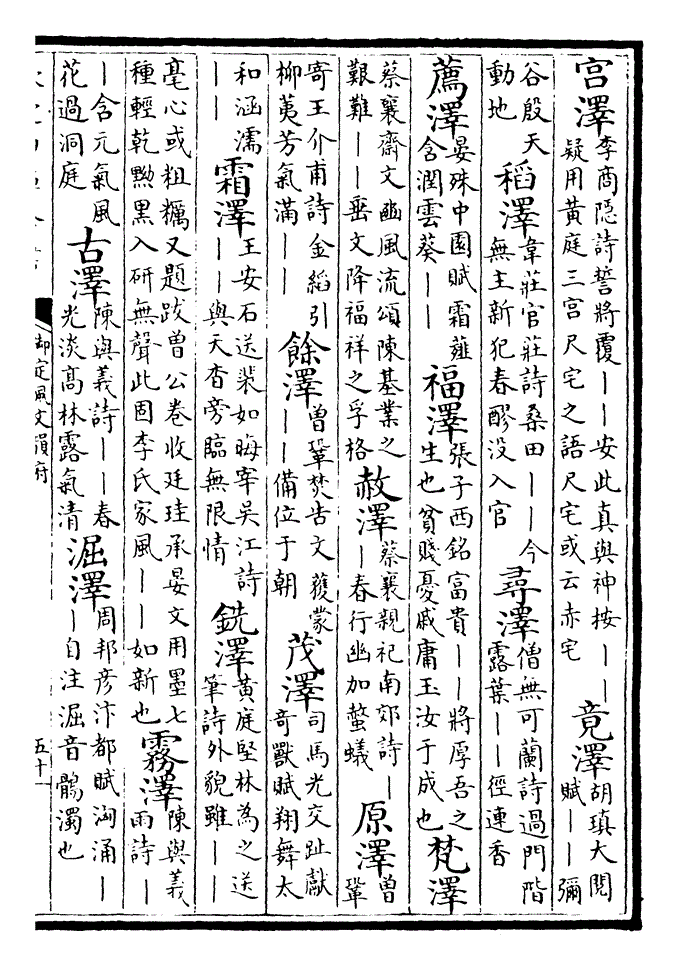 宫澤李商隠詩誓將覆——安此真與神按——疑用黄庭三宫尺宅之語尺宅或云赤宅 竟澤胡瑱大閲賦——彌
谷殷天動地 稻澤韋莊官莊詩桑田——今無主新犯春醪没入官 尋澤僧無可蘭詩過門階露葉——徑連香
薦澤晏殊中園賦霜薤含潤雲葵—— 福澤張子西銘富貴——將厚吾之生也貧賤憂戚庸玉汝于成也 梵澤
蔡襄齋文豳風流頌陳基業之艱難——垂文降福祥之孚格 赦澤蔡襄親祀南郊詩——春行幽加螯蟻 原澤曾鞏
寄王介甫詩金縚引柳荑芳氣滿—— 餘澤曾鞏焚告文蒦蒙——備位于朝 茂澤司馬光交趾獻竒獸賦翔舞太
和涵濡—— 霜澤王安石送裴如晦宰吴江詩——與天杳旁臨無限情 銑澤黄庭堅林為之送筆詩外貌雖——
毫心或粗糲又題跋曾公卷收廷珪承晏文用墨七種輕乾黝黒入研無聲此固李氏家風——如新也 霧澤陳與義雨詩—
—含元氣風花過洞庭 古澤陳與義詩——春光淡髙林露氣清 淈澤周邦彦汴都賦洶涌——自注淈音鶻濁也
御定佩文韻府
五十一